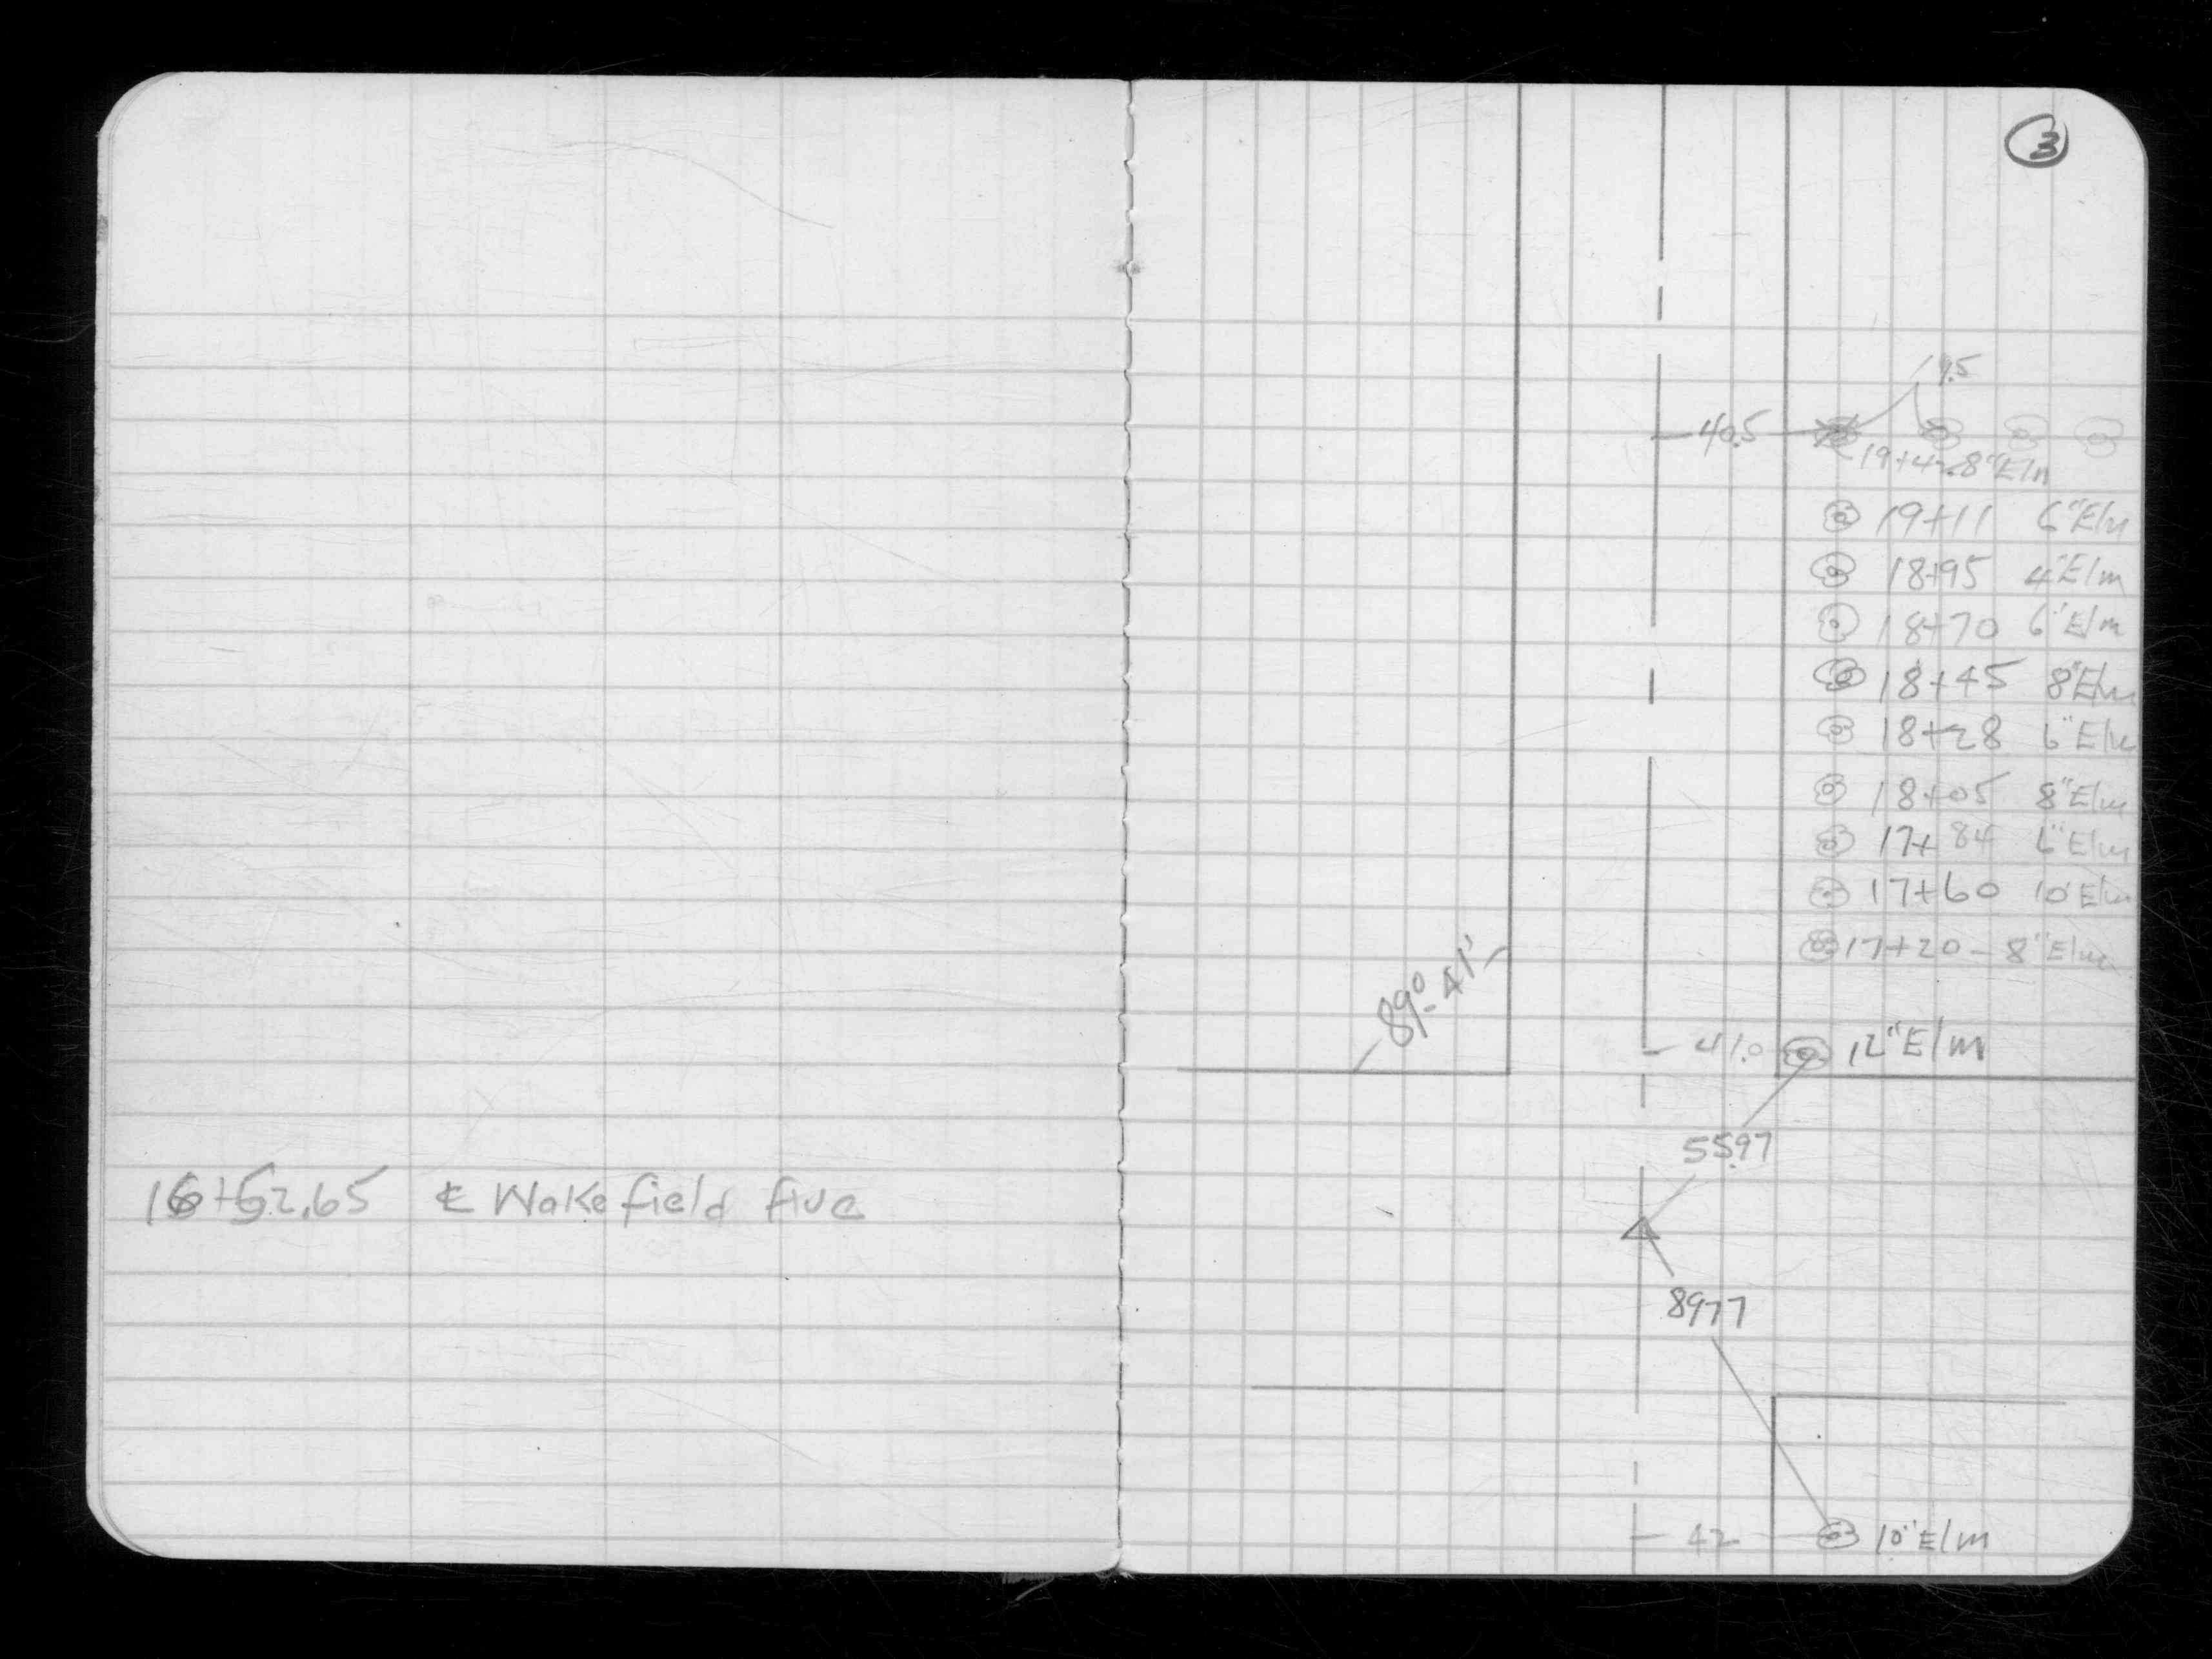 16+52.65 ℄ Wakefield Ave
3
40.5
19+42 8" Elm
19+11 6" Elm
18+95 4" Elm
18+70 6" Elm
18+45 8" Elm
18+28 6" Elm
18+05 8" Elm
17+84 6" Elm
17+60 10" Elm
17+20 - 8" Elm
89°-41'
41.0 12" Elm
55.97
89.77
42 10" Elm